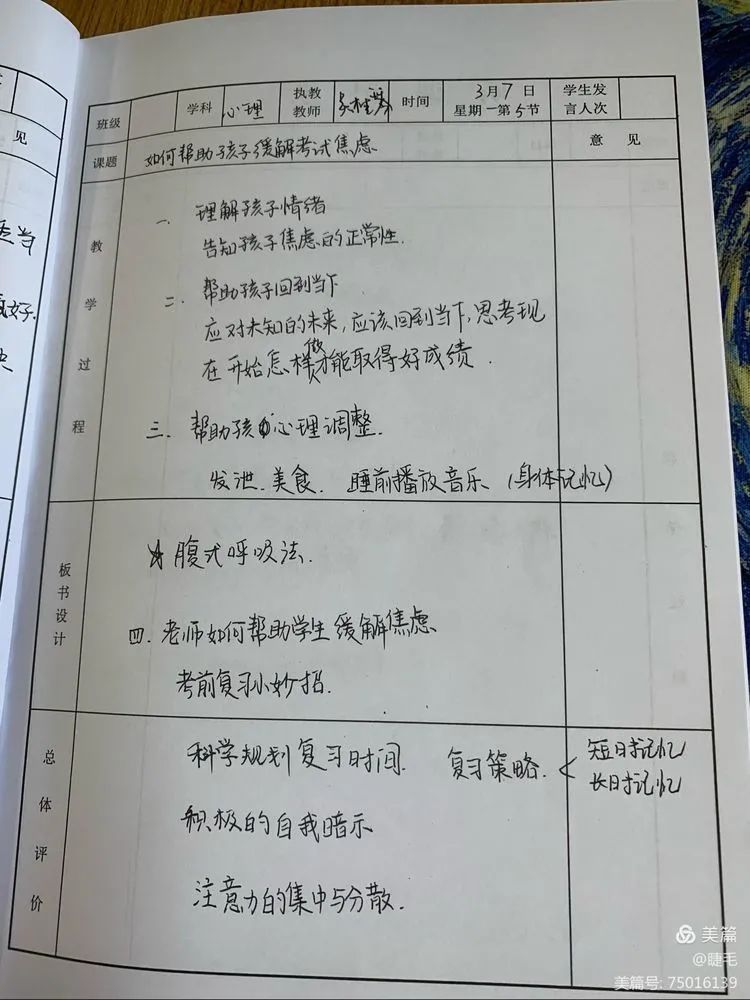 见
适当
好.
班级 学科 心理 执教教师 时间 3月7日 星期一第5节 学生发言人次
课题 如何帮助孩子缓解考试焦虑. 意见
教学过程
一. 理解孩子情绪
告知孩子焦虑的正常性.
二. 帮助孩子回到当下
应对未知的未来,应该回到当下,思考现
在开始怎样做才能取得好成绩.
三. 帮助孩心理调整.
发泄.美食. 睡前播放音乐(身体记忆)
板书设计
☆腹式呼吸法.
四. 老师如何帮助学生缓解焦虑
考前复习小妙招.
总体评价
科学规划复习时间. 复习策略. < 短时记忆
长时记忆
积极的自我暗示
注意力的集中与分散.
美篇
@睫毛
美篇号: 75016139